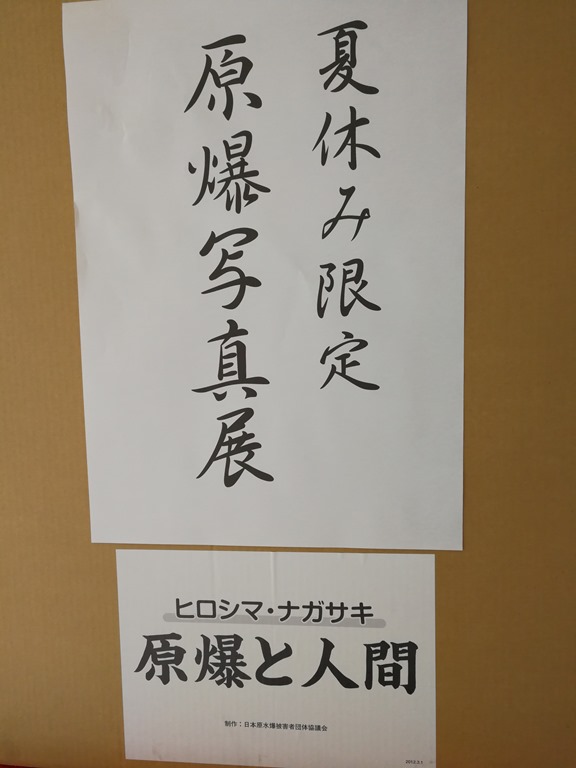 夏休み限定
原爆写真展
ヒロシマ・ナガサキ
原爆と人間
制作:日本原水爆被害者団体協議会